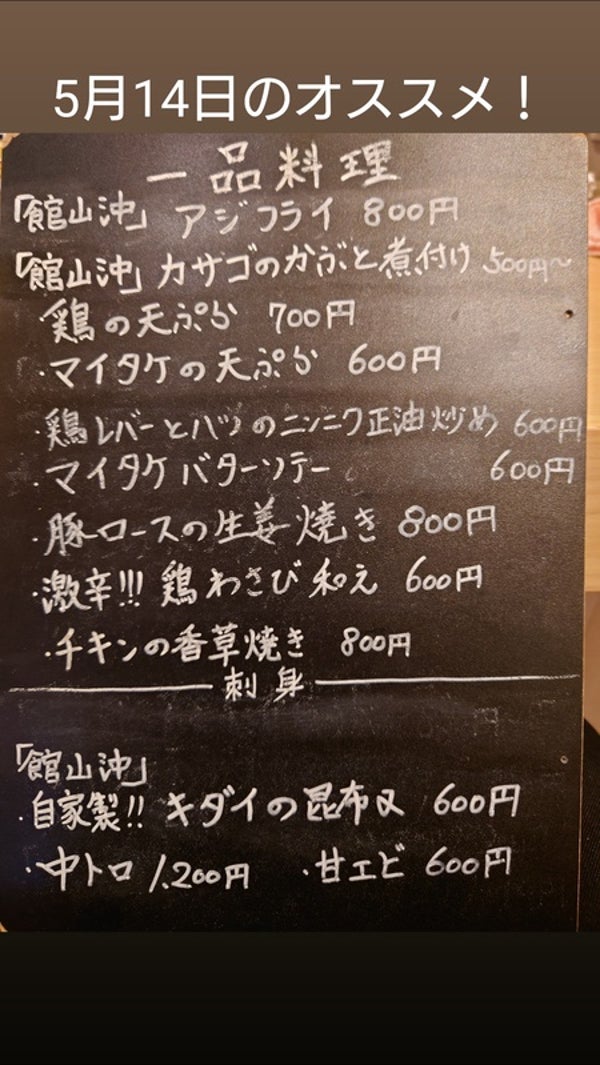 5月14日のオススメ！
一品料理
「館山沖」 アジフライ 800円
「館山沖」 カサゴのかぶと煮付け 500円〜
・鶏の天ぷら 700円
・マイタケの天ぷら 600円
・鶏レバーとハツのニンニク正油炒め 600円
・マイタケバターソテー 600円
・豚ロースの生姜焼き 800円
・激辛!!! 鶏わさび和え 600円
・チキンの香草焼き 800円
刺身
「館山沖」
・自家製!! キダイの昆布〆 600円
・中トロ 1.200円 ・甘エビ 600円